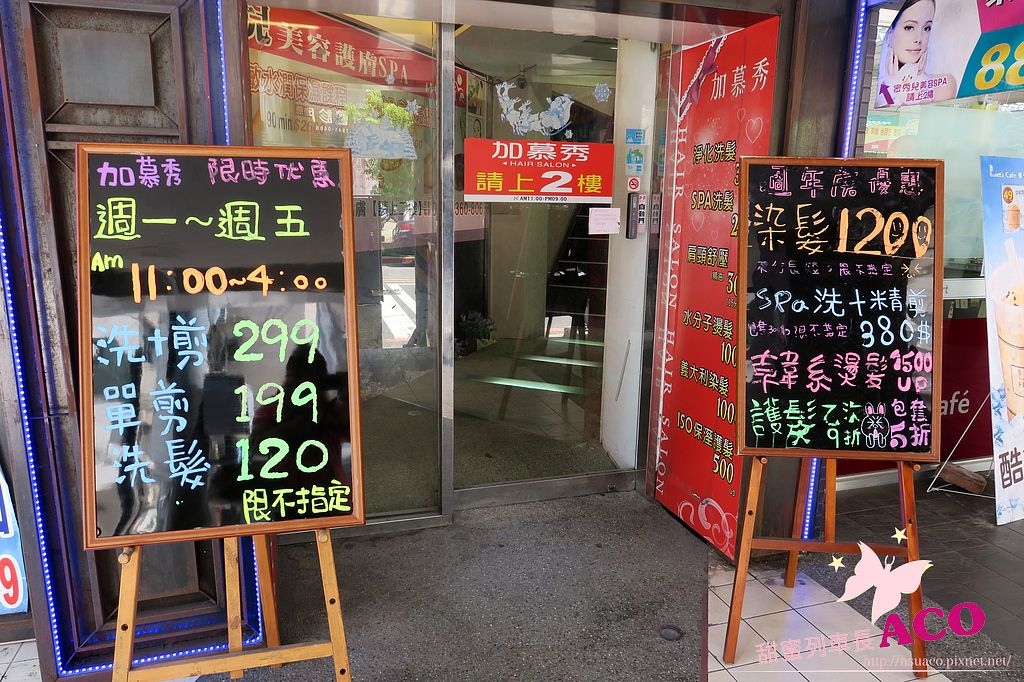 加慕秀 限時优惠
週一～週五
Am 11:00~4:00
洗+剪 299
單剪 199
洗髮 120
限不指定
美容護膚SPA
90 min
加慕秀
HAIR SALON
請上2樓
AM11:00-PM09:00
加慕秀
HAIR SALON HAIR SALON
淨化洗髮
SPA洗髮
肩頸舒壓
水分子燙髮
義大利染髮
ISO保溼護髮
500
染髮1200
SPa洗+精剪
限不指定 380$
韓系燙髮 1500 UP
護髮乙次9折 包套5折
密秀兒美容SPA
請上2樓
88
café
酷
9
ACO
甜蜜列車長
http://hsuaco.pixnet.net/